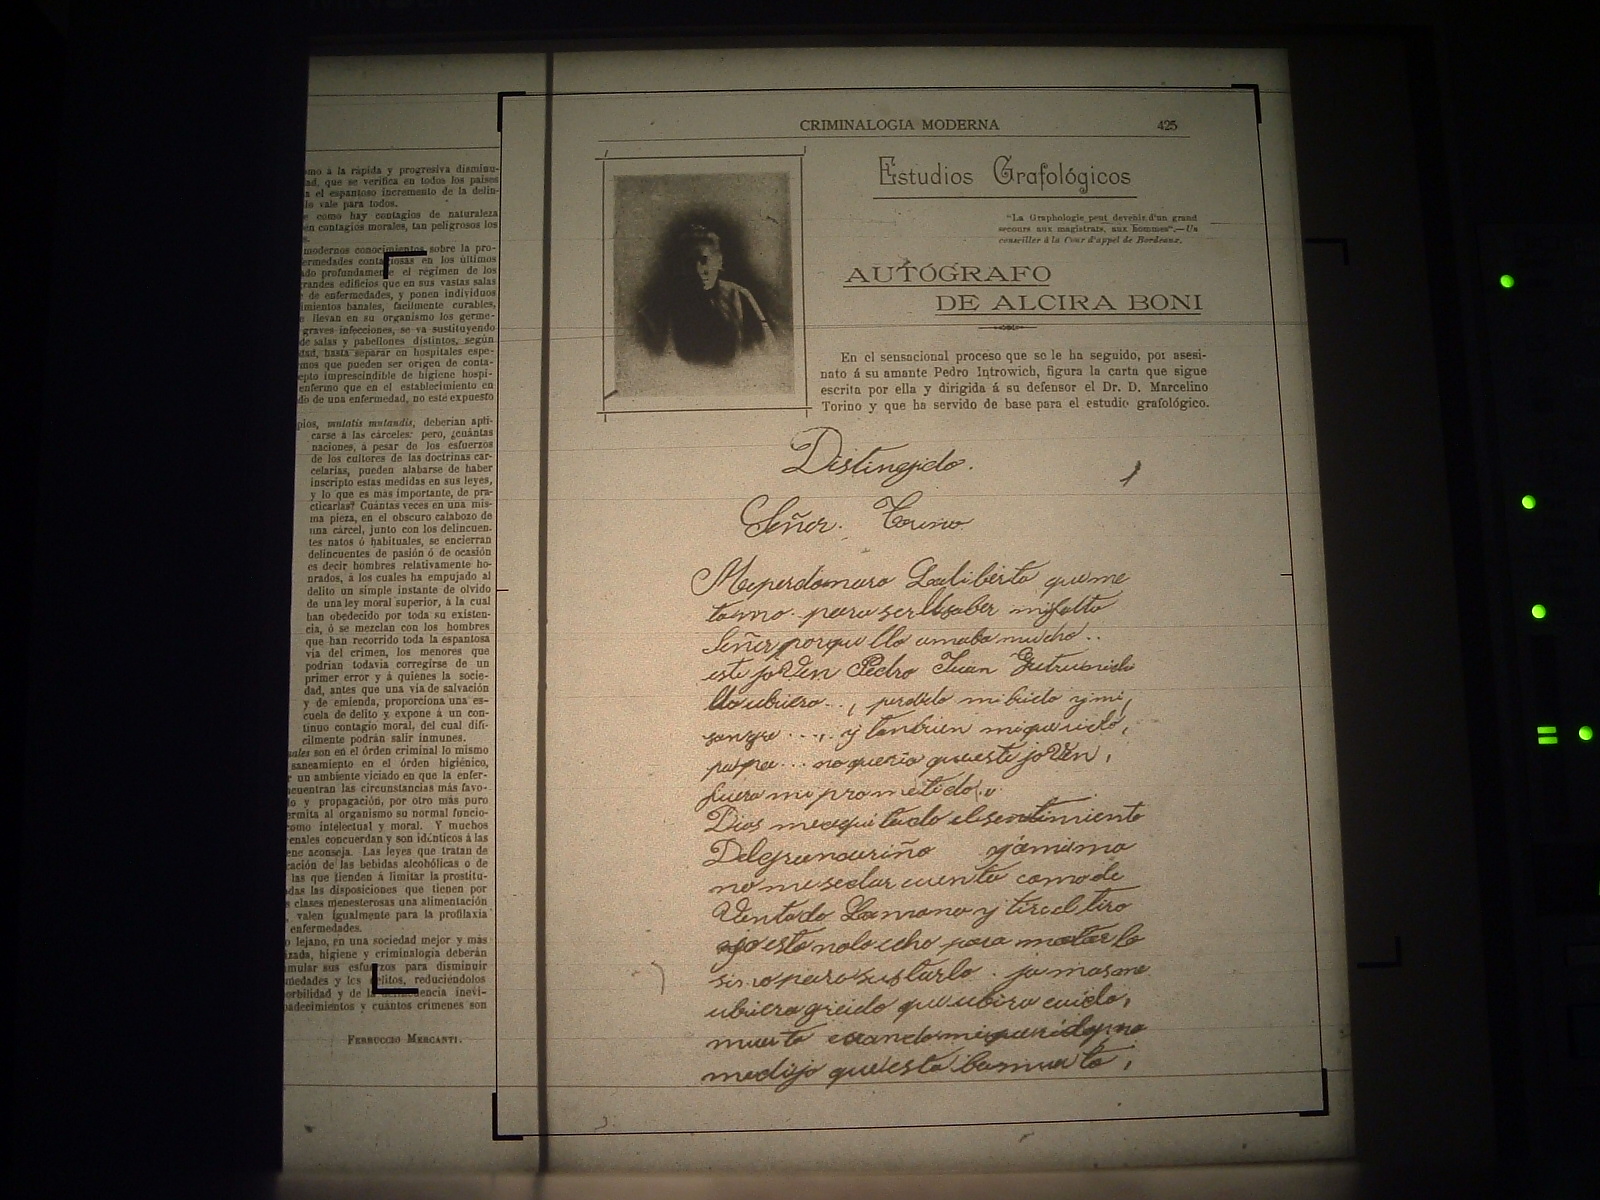 omo à la rápida y progresiva disminu-
ad, que se verifica en todos los países
a el espantoso incremento de la delin-
lo vale para todos.
e como hay contagios de naturaleza
én contagios morales, tan peligrosos los
s.
modernos conocimientos sobre la pro-
ermedades contagiosas en los últimos
ado profundamente el régimen de los
randes edificios que en sus vastas salas
de enfermedades, y ponen individuos
imientos banales, facilmente curables,
e llevan en su organismo los germe-
graves infecciones, se va sustituyendo
de salas y pabellones distintos, según
dad, hasta separar en hospitales espe-
mos que pueden ser origen de conta-
epto imprescindible de higiene hospi-
enfermo que en el establecimiento en
do de una enfermedad, no esté expuesto
pios, mutatis mutandis, deberían apli-
carse á las cárceles: pero, ¿cuántas
naciones, á pesar de los esfuerzos
de los cultores de las doctrinas car-
celarias, pueden alabarse de haber
inscripto estas medidas en sus leyes,
y lo que es más importante, de pra-
cticarlas? Cuántas veces en una mis-
ma pieza, en el obscuro calabozo de
una cárcel, junto con los delincuen-
tes natos ó habituales, se encierran
delincuentes de pasión ó de ocasión
es decir hombres relativamente ho-
nrados, á los cuales ha empujado al
delito un simple instante de olvido
de una ley moral superior, á la cual
han obedecido por toda su existen-
cia, ó se mezclan con los hombres
que han recorrido toda la espantosa
via del crimen, los menores que
podrían todavia corregirse de un
primer error y á quienes la socie-
dad, antes que una via de salvación
y de emienda, proporciona una es-
cuela de delito y expone á un con-
tinuo contagio moral, del cual difi-
cilmente podrán salir inmunes.
uales son en el órden criminal lo mismo
saneamiento en el órden higiénico,
r un ambiente viciado en que la enfer-
cuentran las circunstancias más favo-
lo y propagación, por otro más puro
ermita al organismo su normal funcio-
como intelectual y moral. Y muchos
enales concuerdan y son idénticos á las
ene aconseja. Las leyes que tratan de
cación de las bebidas alcohólicas o de
las que tienden á limitar la prostitu-
das las disposiciones que tienen por
s clases menesterosas una alimentación
valen igualmente para la profilaxia
enfermedades.
o lejano, en una sociedad mejor y más
izada, higiene y criminalogia deberán
mular sus esfuerzos para disminuir
medades y los delitos, reduciéndolos
orbilidad y de la delincuencia inevi-
adecimientos y cuántos crímenes son
Ferruccio Mercanti.
CRIMINALOGIA MODERNA 425
Estudios Grafológicos
"La Graphologie peut devenir d'un grand
secours aux magistrats, aux hommes".—Un
conseiller à la Cour d'appel de Bordeaux.
AUTÓGRAFO
DE ALCIRA BONI
En el sensacional proceso que se le ha seguido, por asesi-
nato á su amante Pedro Introwich, figura la carta que sigue
escrita por ella y dirigida á su defensor el Dr. D. Marcelino
Torino y que ha servido de base para el estudio grafológico.
Distingido.
Señor. Torino
Meperdonara Laliberta queme
tomo. para serllsaber mifalta
Señor porque llo amaba mucho..
este joVen Pedro Juan
llo ubiera.., perdido mi bida y mi,
sangre ...., y tanbien mi querido,
papa... no queria queeste joVen,
fuera mi prometido
Dios meaquitado elsentimiento
Delgrancariño yámisma
no mesedar cuenta como le
Ventado Lamano y tireel tiro
esto nolo echo para matarlo
sino para sustarlo. jamasme
ubiera qreido que ubira cuido,
muerto cuando
medijo que estabamuerto,